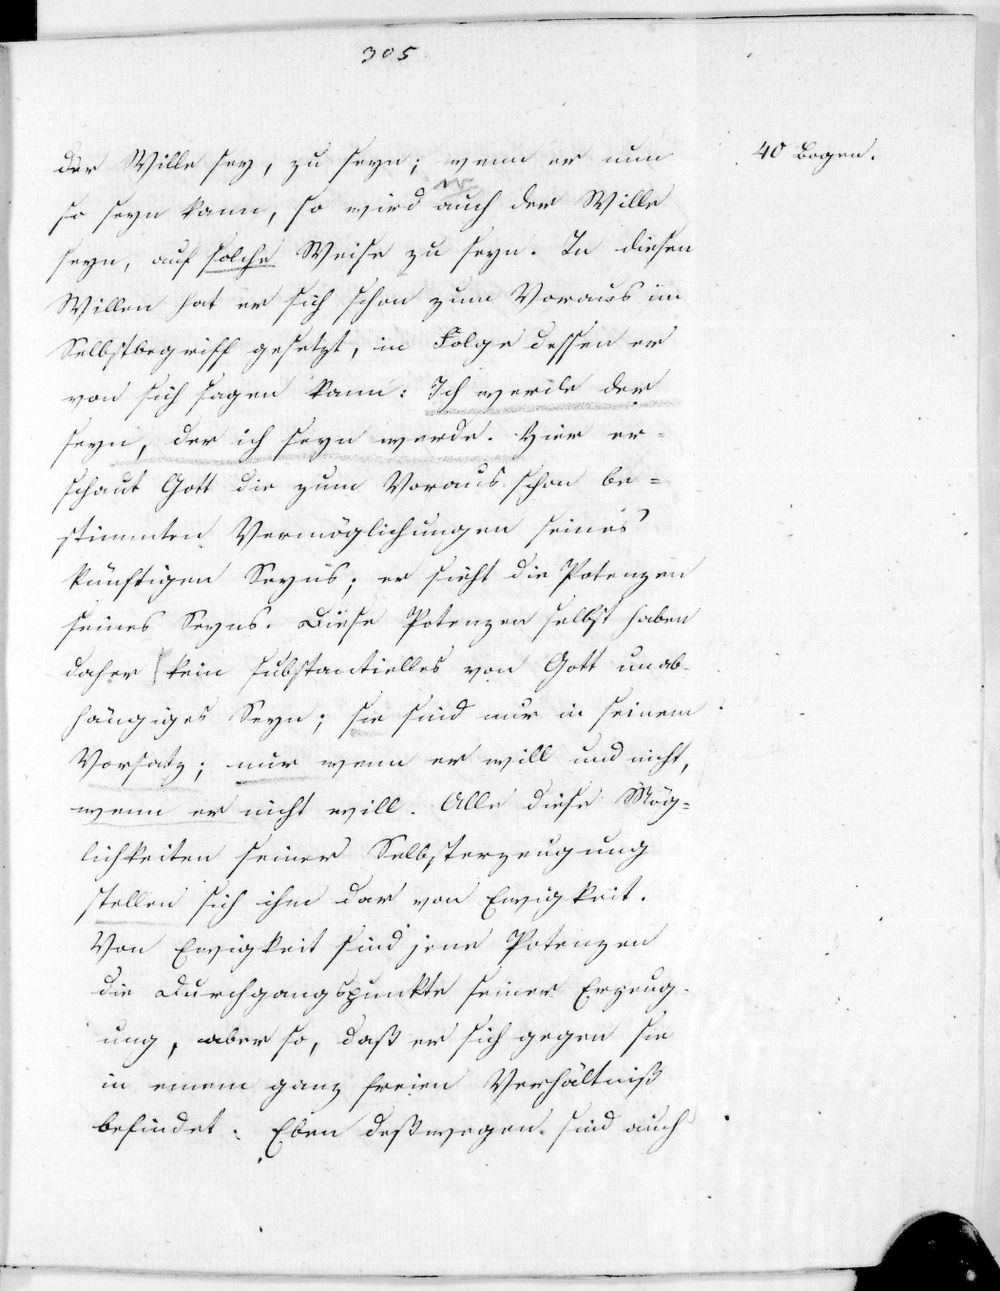 305
40 Bogen.
der Wille sey, zu seyn; wenn er nun
so seyn kann, so wird er auch der Wille
seyn, auf solche Weise zu seyn. In diesen
Willen hat er sich schon zum Voraus im
Selbstbegriff gesetzt, in Folge dessen er
von sich sagen kann: Ich werde der
seyn, der ich seyn werde. Hier er-
schaut Gott die zum Voraus schon be=
stimmten Vermöglichungen seines
künftigen Seyns; er sieht die Potenzen
seines Seyns. Diese Potenzen selbst haben
daher kein substantielles von Gott unab-
hängiges Seyn; sie sind nur in seinem
Vorsatz; nur wenn er will und nicht,
wenn er nicht will. Alle diese Mög=
lichkeiten seiner Selbsterzeugung
stellen sich ihm dar von Ewigkeit.
Von Ewigkeit sind jene Potenzen
die Durchgangspunkte seiner Erzeug-
ung, aber so, daß er sich gegen sie
in einem ganz freien Verhältniß
befindet. Eben deßwegen sind auch